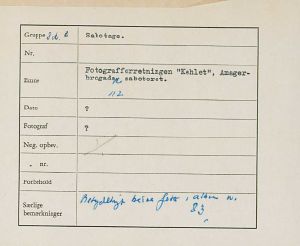 Gruppe 8 d. b Sabotage.
Nr.
Emne Fotografforretningen "Kehlet", Amager-
brogade saboteret.
112
Dato ?
Fotograf ?
Neg. opbev.
„ nr.
Forbehold
Særlige Betydeligt bedre foto i album nr.
bemærkninger 83